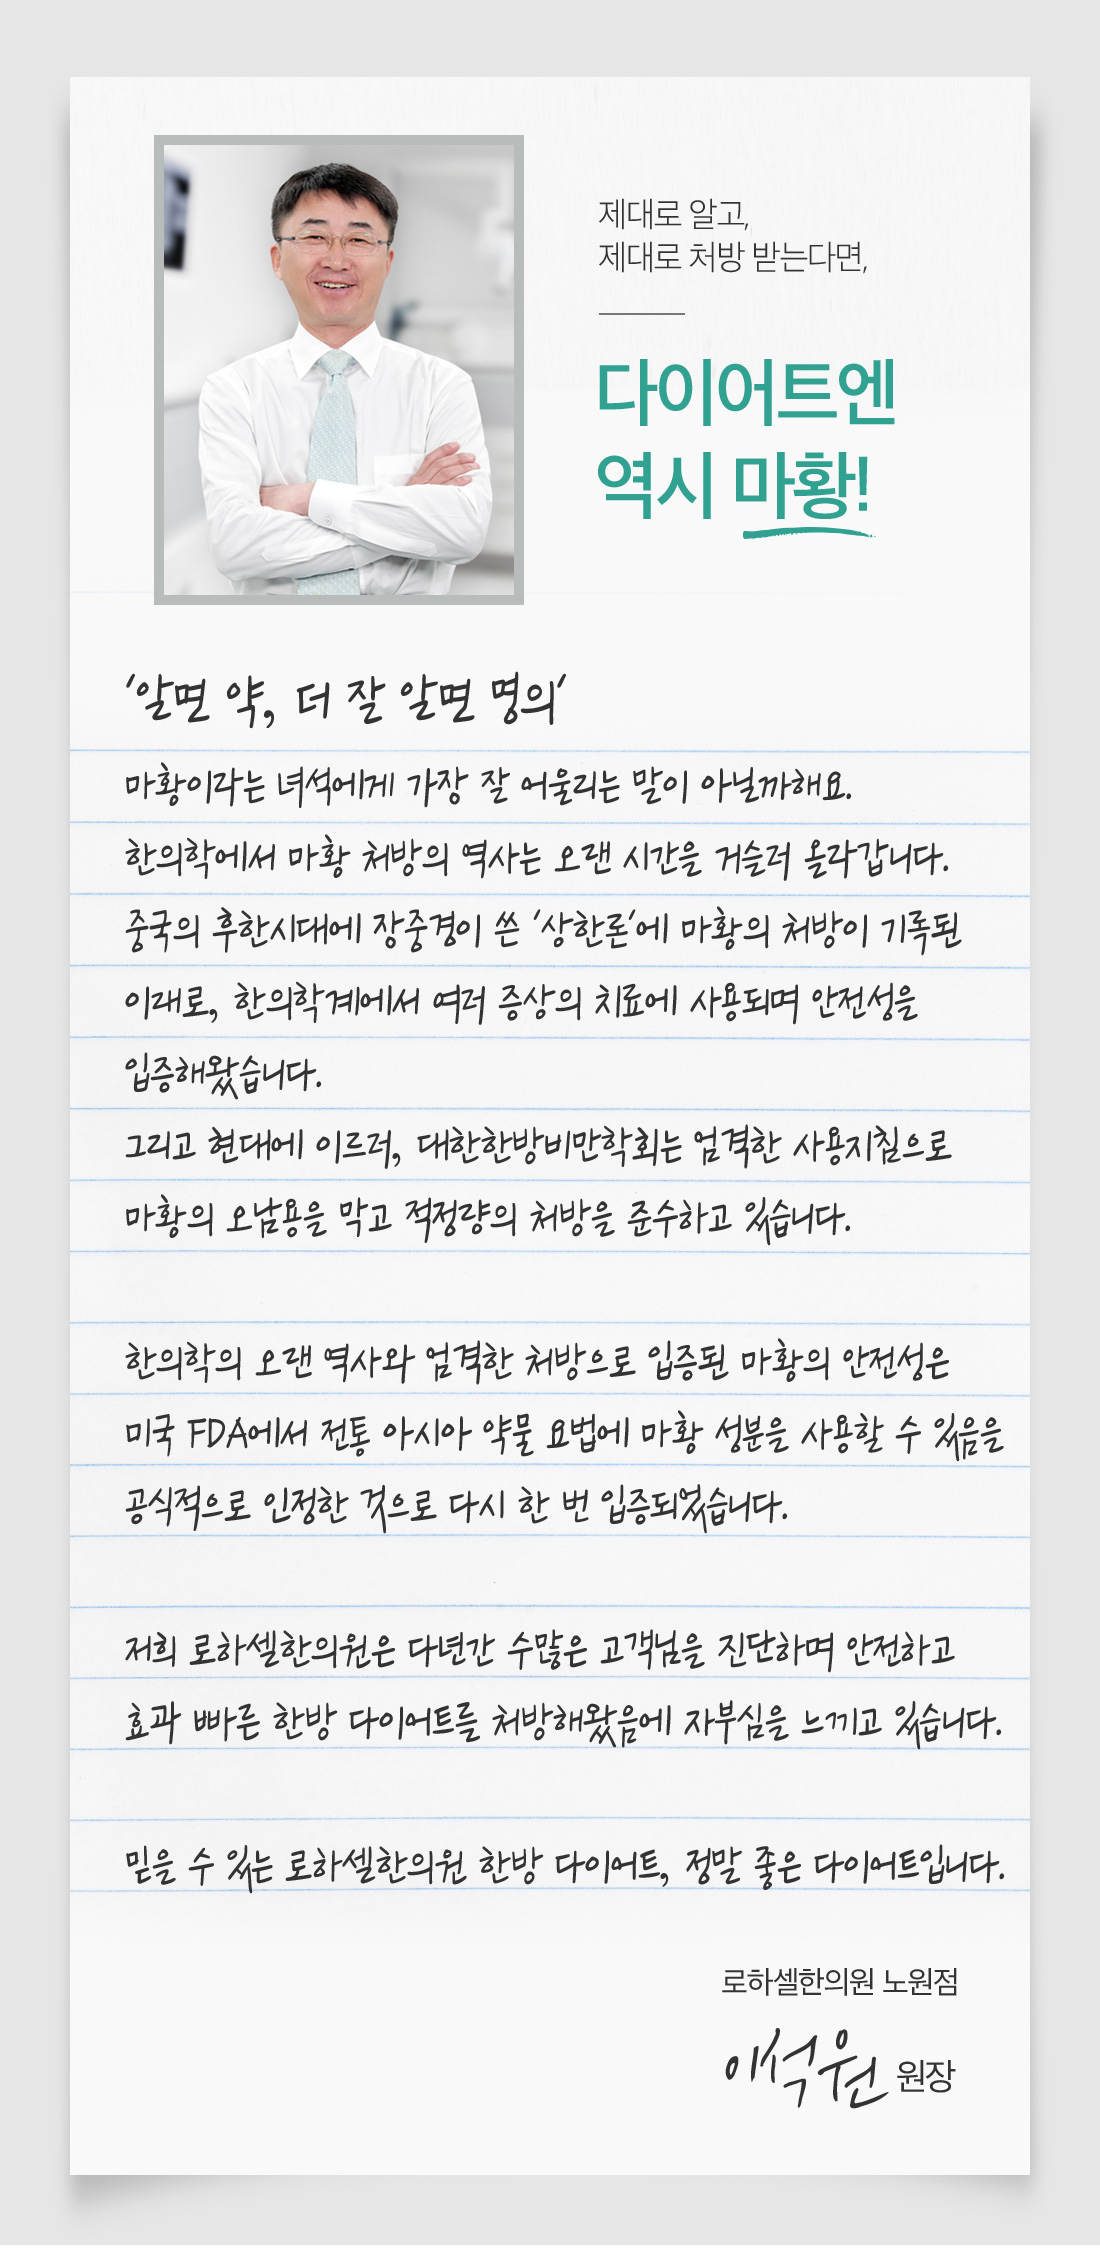 제대로 알고,
제대로 처방 받는다면,
다이어트엔
역시 마황!
'알면 약, 더 잘 알면 명의'
마황이라는 녀석에게 가장 잘 어울리는 말이 아닐까해요.
한의학에서 마황 처방의 역사는 오랜 시간을 거슬러 올라갑니다.
중국의 후한시대에 장중경이 쓴 '상한론'에 마황의 처방이 기록된
이래로, 한의학계에서 여러 증상의 치료에 사용되며 안전성을
입증해왔습니다.
그리고 현대에 이르러, 대한한방비만학회는 엄격한 사용지침으로
마황의 오남용을 막고 적정량의 처방을 준수하고 있습니다.
한의학의 오랜 역사와 엄격한 처방으로 입증된 마황의 안전성은
미국 FDA에서 전통 아시아 약물 요법에 마황 성분을 사용할 수 있음을
공식적으로 인정한 것으로 다시 한 번 입증되었습니다.
저희 로하셀한의원은 다년간 수많은 고객님을 진단하며 안전하고
효과 빠른 한방 다이어트를 처방해왔음에 자부심을 느끼고 있습니다.
믿을 수 있는 로하셀한의원 한방 다이어트, 정말 좋은 다이어트입니다.
로하셀한의원 노원점
이석원 원장